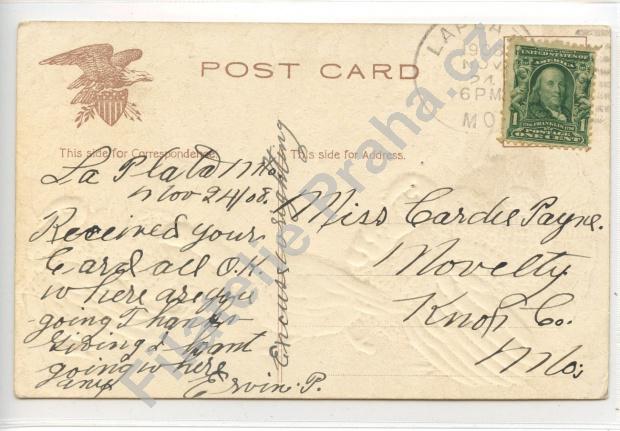 POST CARD
This side for Correspondence.
This side for Address.
LAPLATA
1908
NOV
24
6PM
MO
UNITED STATES OF AMERICA
FRANKLIN
1
1
POSTAGE
ONE CENT
La Plata Mo
Nov 24/08.
Received your
Card all O.K
where are you
going Thanks
Giving I want
going where
any
Ervin. P.
Excuse writing
Miss Cardie Payne.
Novelty
Knox Co.
Mo.
Filatelie Praha.cz